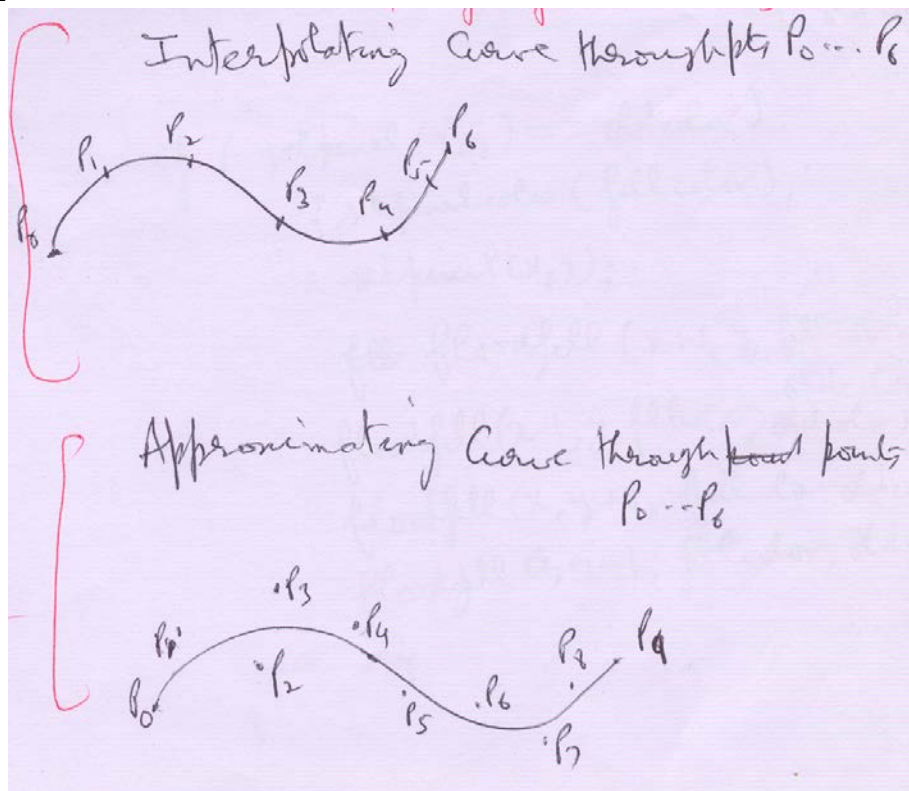 Interpolating Curve through pts P0 ... P6
P1 P2 P3 P4 P5 P6
P0
Approximating Curve through points
P0 ... P6
P3
P1 P4
P2 P8 P9
P0 P5 P6
P7